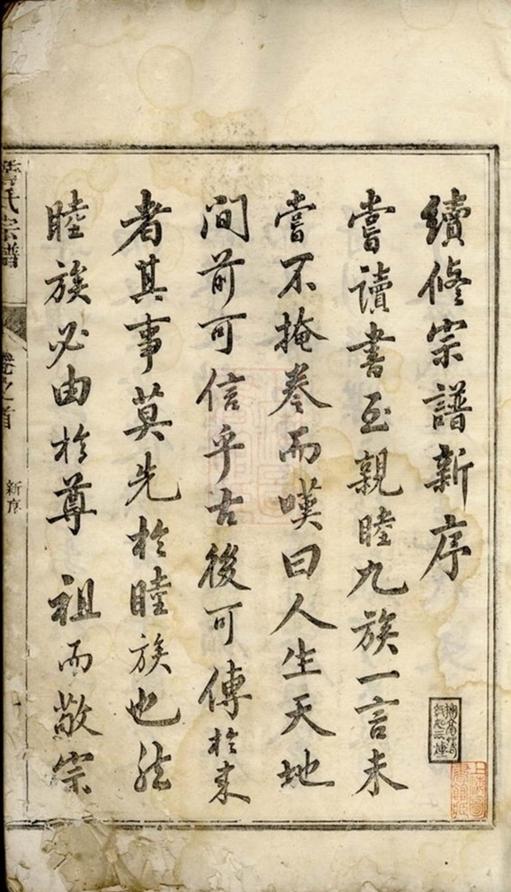 續修宗譜新序
嘗讀書至親睦九族一言未
嘗不掩卷而嘆曰人生天地
間前可信乎古後可傳於來
者其事莫先於睦族也然
睦族必由於尊祖而敬宗
氏宗譜
卷之首
新序